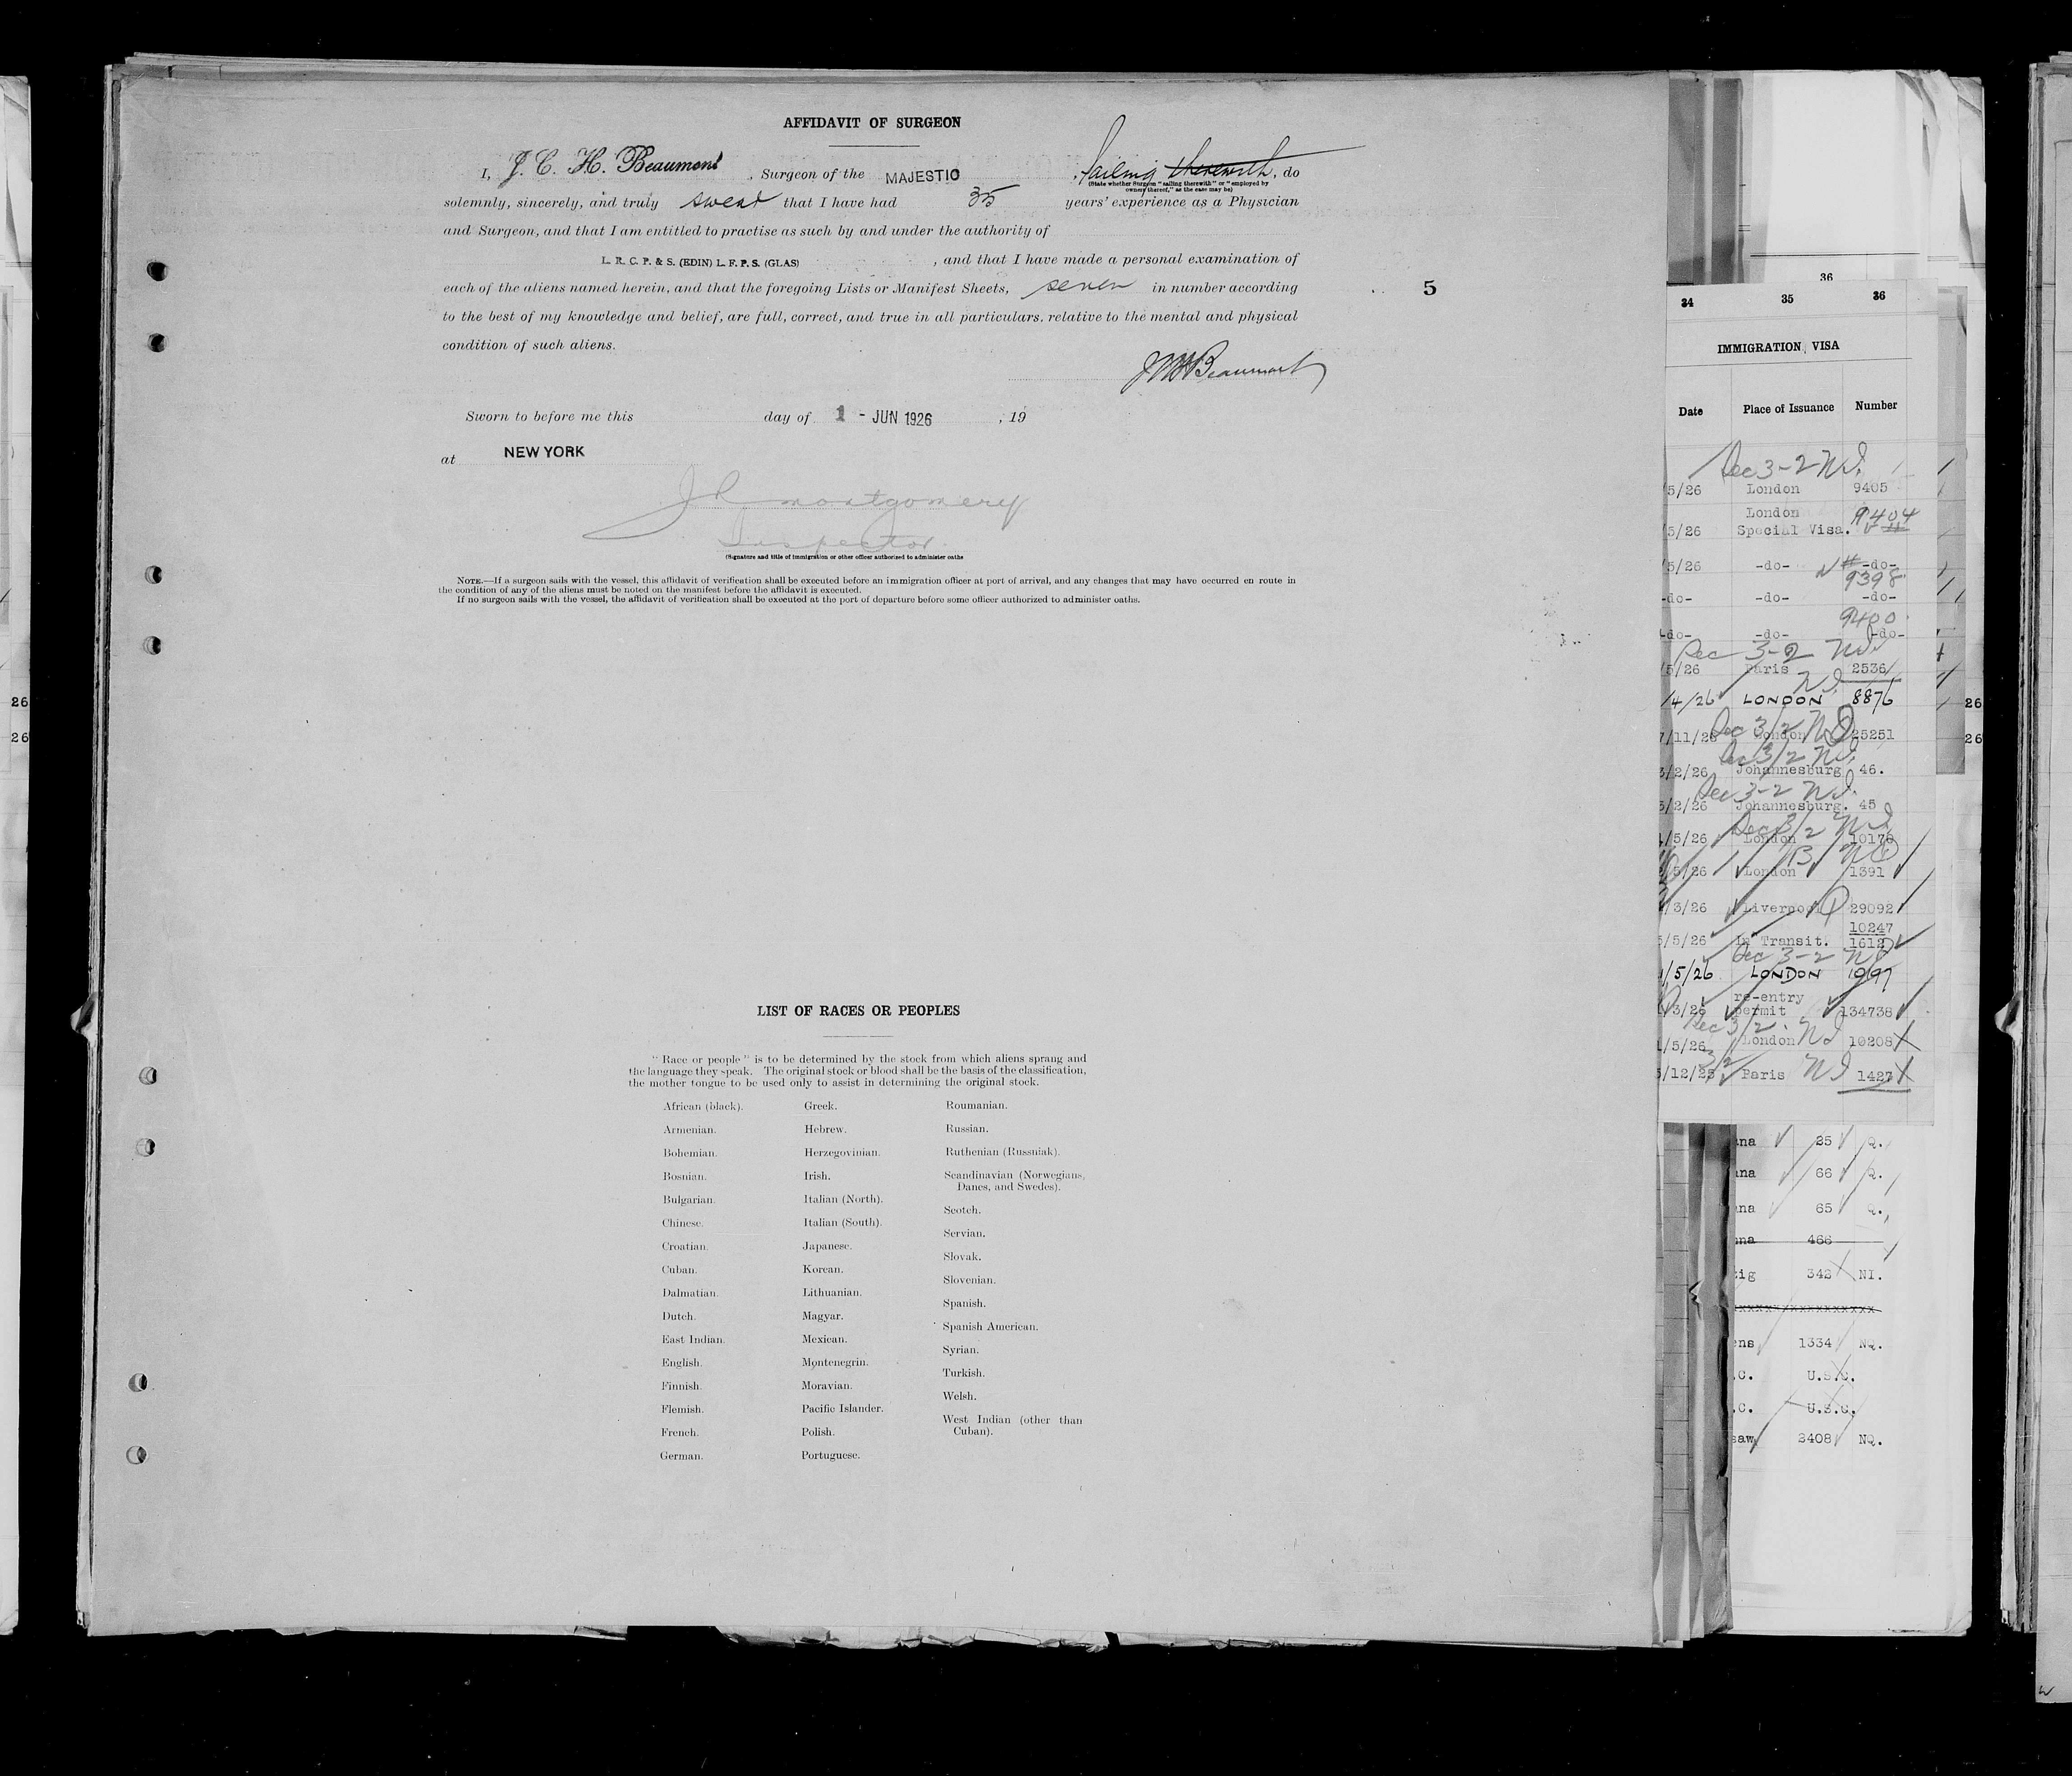 AFFIDAVIT OF SURGEON
I, J. C. H. Beaumont, Surgeon of the MAJESTIC, sailing therewith, do
(State whether Surgeon "sailing therewith" or "employed by
owners thereof," as the case may be)
solemnly, sincerely, and truly swear that I have had 35 years' experience as a Physician
and Surgeon, and that I am entitled to practise as such by and under the authority of
L. R. C. P. & S. (EDIN) L. F. P. S. (GLAS) , and that I have made a personal examination of
each of the aliens named herein, and that the foregoing Lists or Manifest Sheets, seven in number according
5
to the best of my knowledge and belief, are full, correct, and true in all particulars, relative to the mental and physical
condition of such aliens.
Beaumont
Sworn to before me this day of 1 - JUN 1926 , 19
at NEW YORK
Montgomery
Inspector.
(Signature and title of immigration or other officer authorized to administer oaths
NOTE.—If a surgeon sails with the vessel, this affidavit of verification shall be executed before an immigration officer at port of arrival, and any changes that may have occurred en route in
the condition of any of the aliens must be noted on the manifest before the affidavit is executed.
If no surgeon sails with the vessel, the affidavit of verification shall be executed at the port of departure before some officer authorized to administer oaths.
LIST OF RACES OR PEOPLES
"Race or people" is to be determined by the stock from which aliens sprang and
the language they speak. The original stock or blood shall be the basis of the classification,
the mother tongue to be used only to assist in determining the original stock.
African (black).
Armenian.
Bohemian.
Bosnian.
Bulgarian.
Chinese.
Croatian.
Cuban.
Dalmatian.
Dutch.
East Indian.
English.
Finnish.
Flemish.
French.
German.
Greek.
Hebrew.
Herzegovinian.
Irish.
Italian (North).
Italian (South).
Japanese.
Korean.
Lithuanian.
Magyar.
Mexican.
Montenegrin.
Moravian.
Pacific Islander.
Polish.
Portuguese.
Roumanian.
Russian.
Ruthenian (Russniak).
Scandinavian (Norwegians,
Danes, and Swedes).
Scotch.
Servian.
Slovak.
Slovenian.
Spanish.
Spanish American.
Syrian.
Turkish.
Welsh.
West Indian (other than
Cuban).
36
34 35 36
IMMIGRATION VISA
Date Place of Issuance Number
Sec 3-2 NI.
5/26 London 9405
London 9404
5/26 Special Visa.
5/26 -do- -do-
9398
-do- -do- -do-
9400
-do- -do- -do-
Sec 3-2 NI
5/26 Paris 2536
NI
/4/26 LONDON 8876
Sec 3/2 NI
7/11/25 London 25251
Sec 3/2 NI
3/2/26 Johannesburg 46.
Sec 3-2 NI.
3/2/26 Johannesburg. 45
Sec 3/2 NI
/5/26 London 10170
/5/26 London 1391
/3/26 Liverpool 29092
10247
/5/26 In Transit. 1612
Sec 3-2 NI
/5/26 LONDON
re-entry
/3/26 permit 134738
Sec 3/2. NI
/5/26 London 10208
3/2 NI
/12/25 Paris 1427
na 25 Q.
na 66 Q.
na 65 Q.
na 466
zig 342 NI.
ens 1334 NQ.
.C. U.S.C.
.C. U.S.C.
saw 2408 NQ.
26
26
26
26